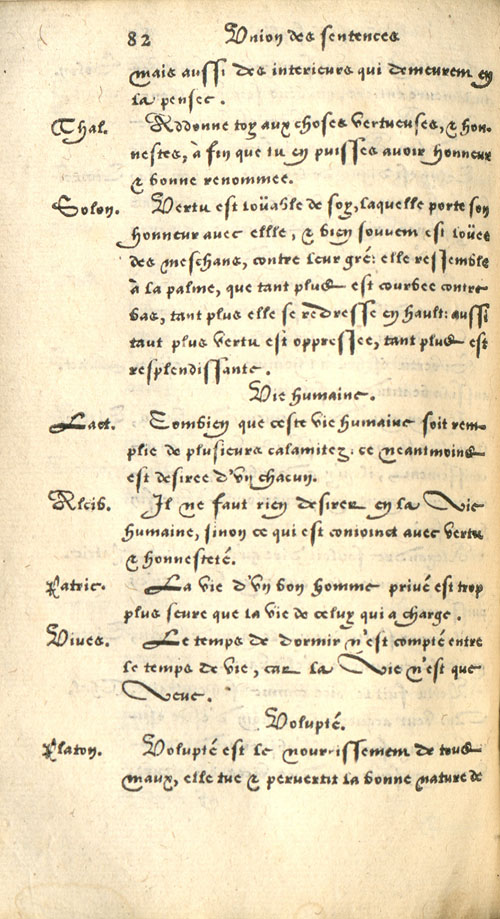 82 Vnion des sentences
mais aussi des interieurs qui demeurent en
la pensee.
Thal. Addonne toy aux choses vertueuses, & hon-
nestes, à fin que tu en puisses avoir honneur
& bonne renommee.
Solon. Vertu est loüable de soy, laquelle porte son
honneur avec ellle, & bien souvent est loües
des meschans, contre leur gré: elle ressemble
à la palme, que tant plus est courbee contre
bas, tant plus elle se redresse en hault: aussi
taut plus vertu est oppressee, tant plus est
resplendissante.
Vie humaine.
Lact. Combien que ceste vie humaine soit rem-
plie de plusieurs calamitez: ce neantmoins
est desiree d'vn chacun.
Alcib. Il ne faut rien desirer en la Vie
humaine, sinon ce qui est conioinct avec vertu
& honnesteté.
Patric. La vie d'vn bon homme privé est trop
plus seure que la vie de celuy qui a charge.
Vives. Le temps de dormir n'est compté entre
le temps de vie, car la Vie n'est que
Veue.
Volupté.
Platon. Volupté est le nourrissement de tous
maux, elle tue & pervertit la bonne nature de